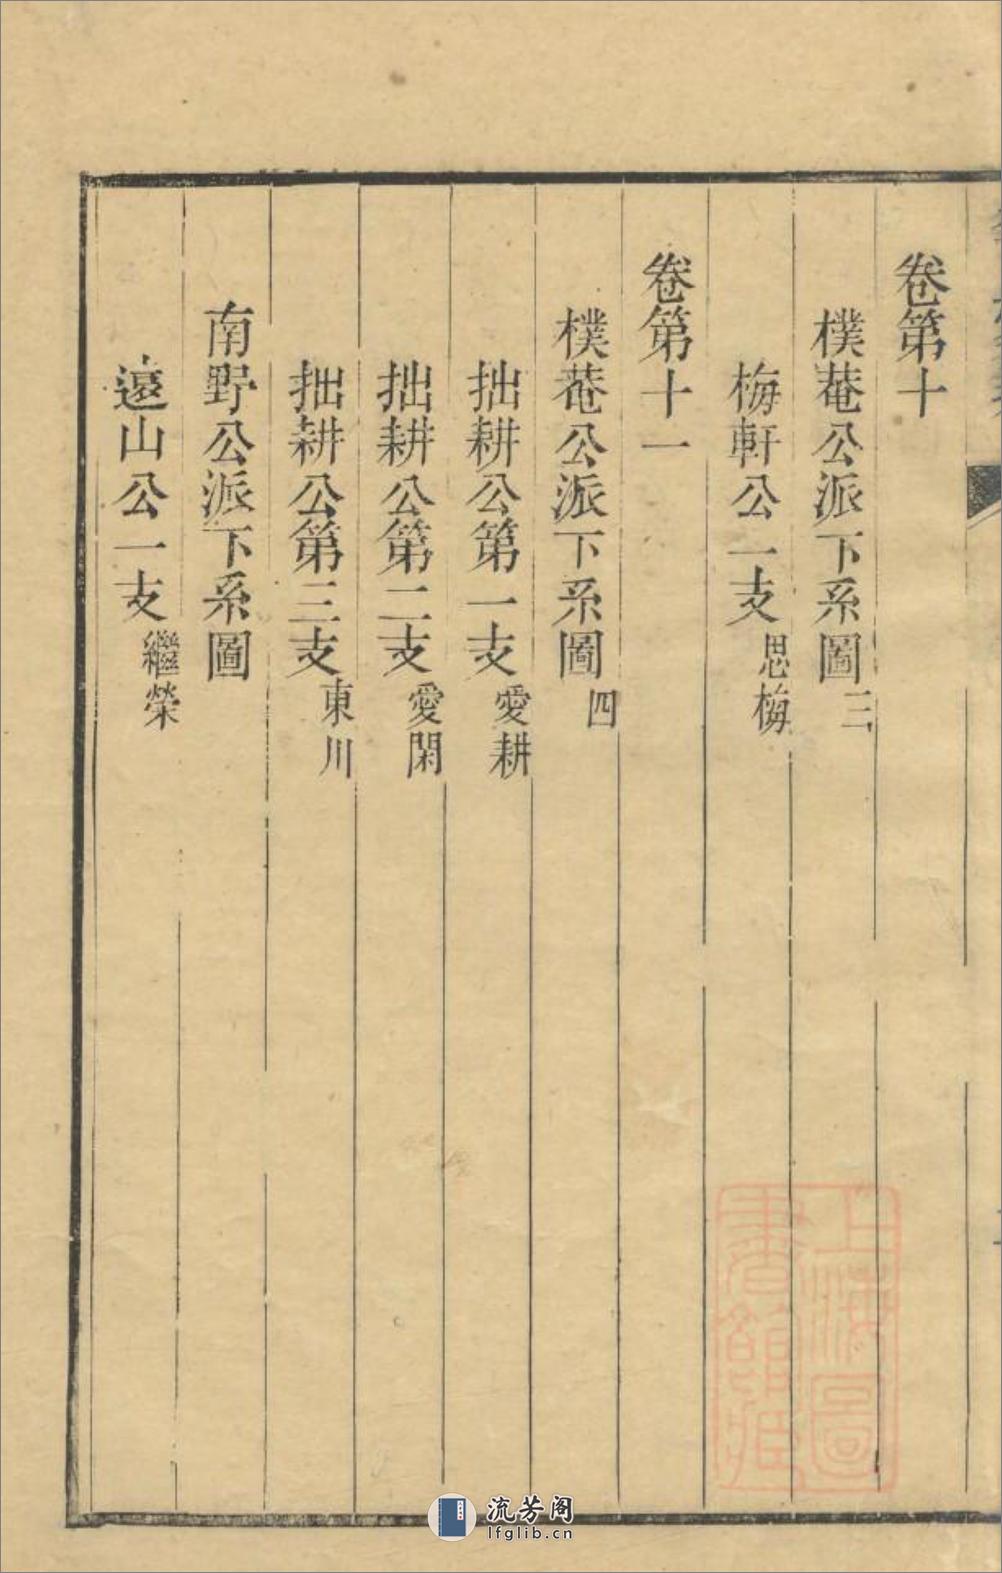 卷第十
樸菴公派下系圖三
梅軒公一支思梅
卷第十一
樸菴公派下系圖四
拙耕公第一支愛耕
拙耕公第二支愛閑
拙耕公第三支東川
南野公派下系圖
遠山公一支繼榮
上海圖
書館藏
流芳阁
lfglib.cn